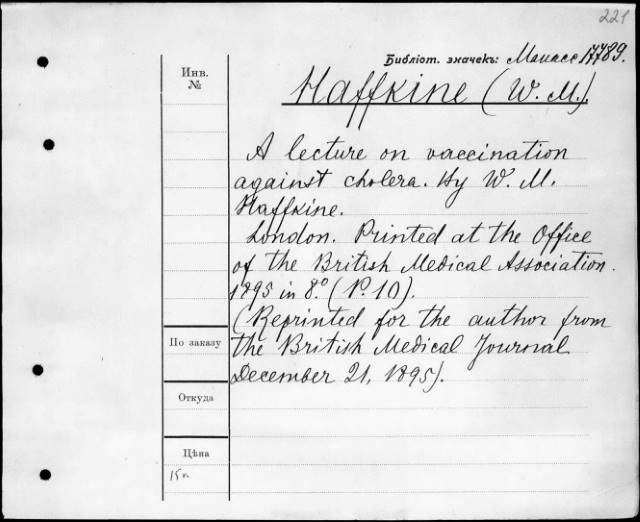 221
Библіот. значекъ: Манасс 17789.
Инв.
№
Haffkine (W. M.).
A lecture on vaccination
against cholera. By W. M.
Haffkine.
London. Printed at the Office
of the British Medical Association.
1895 in 8.° (P. 10).
(Reprinted for the author from
the British Medical Journal
December 21, 1895).
По заказу
Откуда
Цѣна
15к